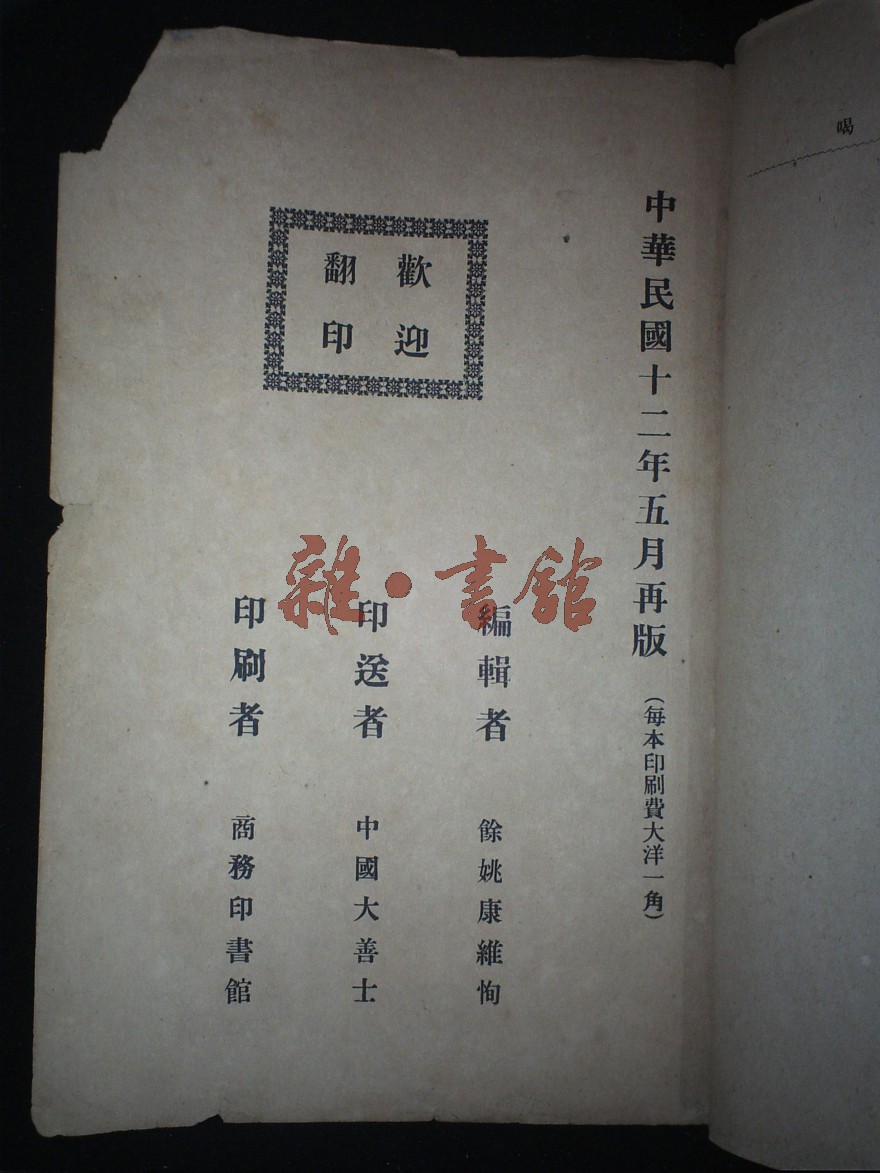 喝
中華民國十二年五月再版
（每本印刷費大洋一角）
歡迎
翻印
編輯者 餘姚康維恂
印送者 中國大善士
印刷者 商務印書館
雜·書館